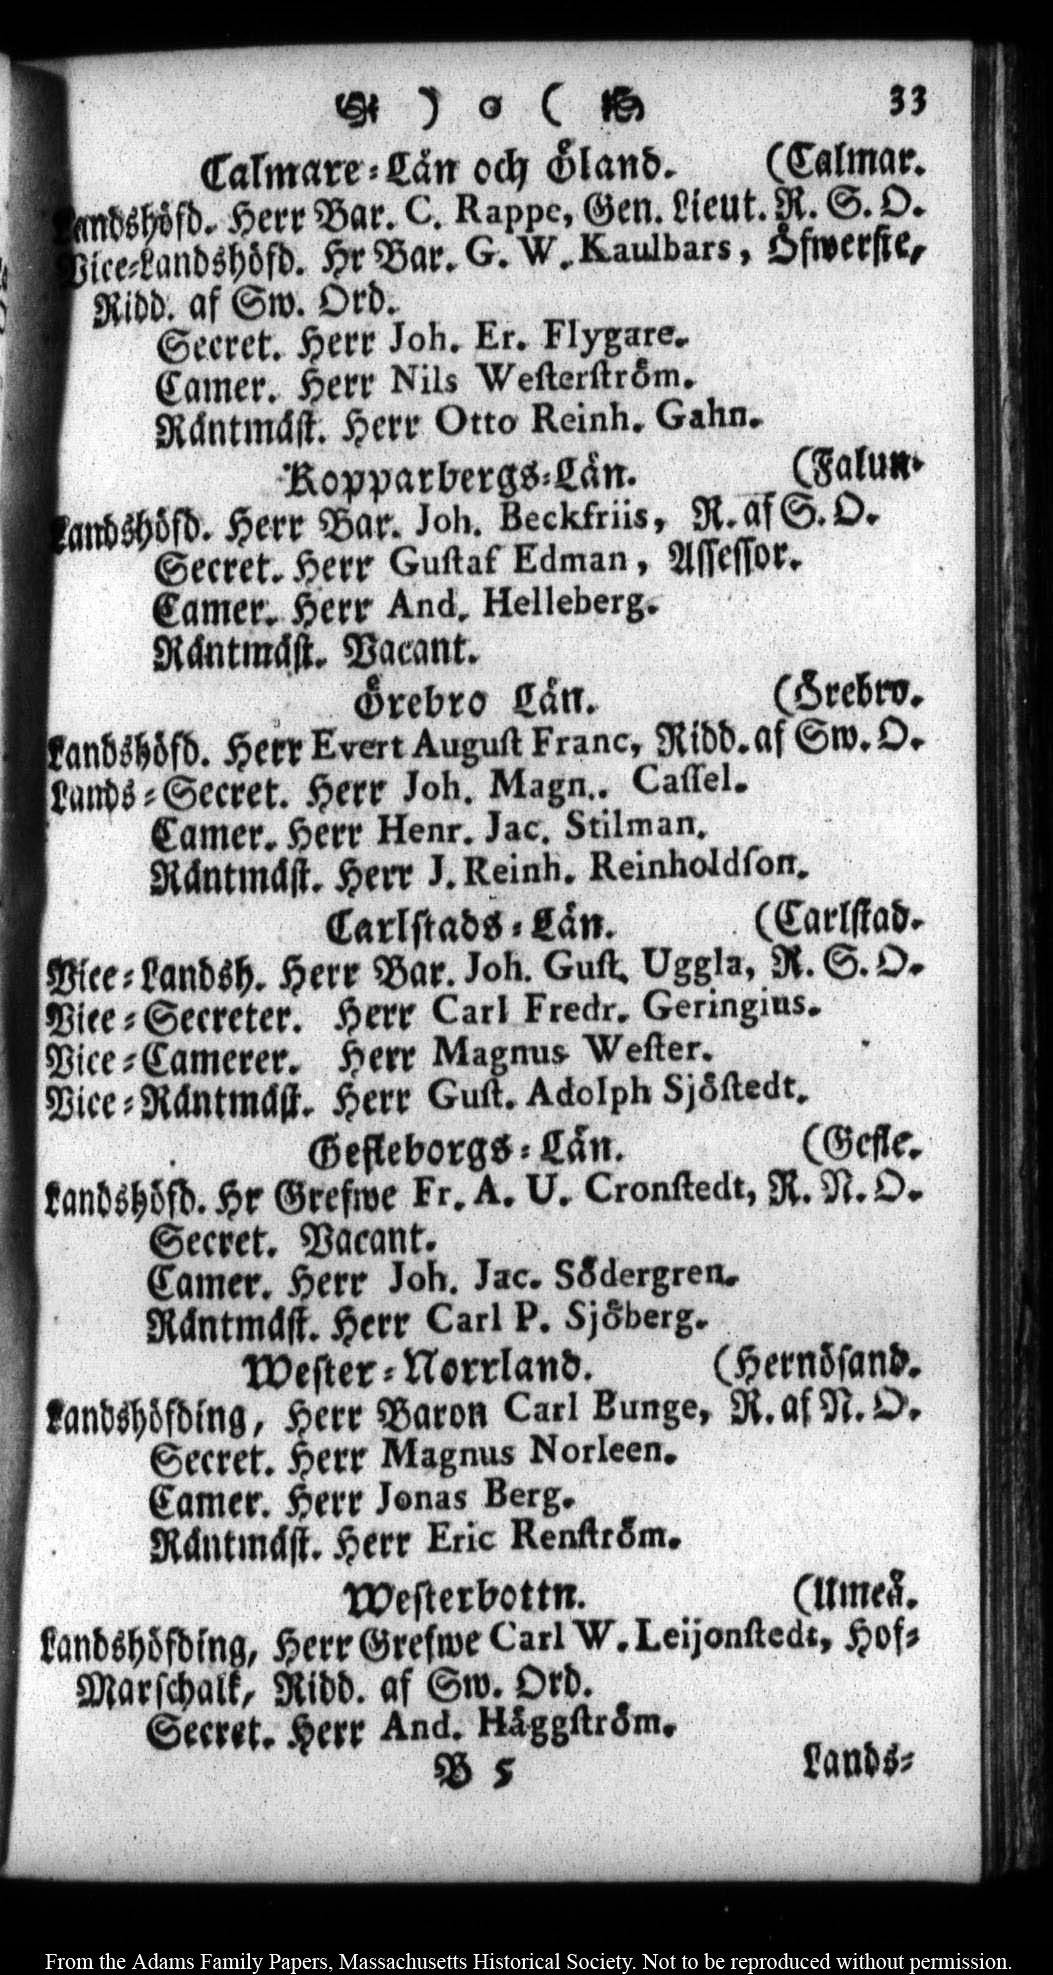 ) o ( 33
Calmare-Län och Öland. (Calmar.
Landshöfd. Herr Bar. C. Rappe, Gen. Lieut. R. S. O.
Vice-Landshöfd. Hr Bar. G. W. Kaulbars, Öfwerste,
Ridd. af Sw. Ord.
Secret. Herr Joh. Er. Flygare.
Camer. Herr Nils Westerström.
Räntmäst. Herr Otto Reinh. Gahn.
Kopparbergs-Län. (Falun.
Landshöfd. Herr Bar. Joh. Beckfriis, R. af S. O.
Secret. Herr Gustaf Edman, Assessor.
Camer. Herr And. Helleberg.
Räntmäst. Vacant.
Örebro Län. (Örebro.
Landshöfd. Herr Evert August Franc, Ridd. af Sw. O.
Lands-Secret. Herr Joh. Magn.. Cassel.
Camer. Herr Henr. Jac. Stilman.
Räntmäst. Herr J. Reinh. Reinholdson.
Carlstads-Län. (Carlstad.
Vice-Landsh. Herr Bar. Joh. Gust. Uggla, R. S. O.
Vice-Secreter. Herr Carl Fredr. Geringius.
Vice-Camerer. Herr Magnus Wester.
Vice-Räntmäst. Herr Gust. Adolph Sjöstedt.
Gefleborgs-Län. (Gefle.
Landshöfd. Hr Grefwe Fr. A. U. Cronstedt, R. N. O.
Secret. Vacant.
Camer. Herr Joh. Jac. Södergren.
Räntmäst. Herr Carl P. Sjöberg.
Wester-Norrland. (Hernösand.
Landshöfding, Herr Baron Carl Bunge, R. af N. O.
Secret. Herr Magnus Norleen.
Camer. Herr Jonas Berg.
Räntmäst. Herr Eric Renström.
Westerbottn. (Umeå.
Landshöfding, Herr Grefwe Carl W. Leijonstedt, Hof-
Marschalk, Ridd. af Sw. Ord.
Secret. Herr And. Häggström.
B 5 Lands-
From the Adams Family Papers, Massachusetts Historical Society. Not to be reproduced without permission.